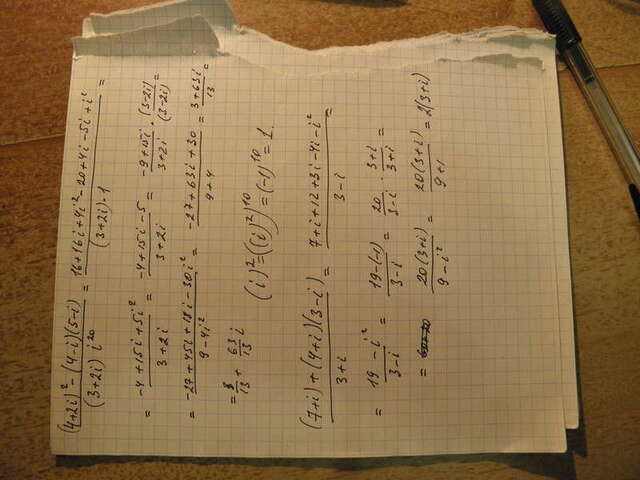 (4+2i)² - (4-i)(5-i) / (3+2i) i²⁰ = 16+16i+4i²-20+4i-5i+i² / (3+2i)·1 =
= -4+15i+5i² / 3+2i = -4+15i-5 / 3+2i = -9+15i / 3+2i · (3-2i) / (3-2i) =
= -27+45i+18i-30i² / 9-4i² = -27+63i+30 / 9+4 = 3+63i / 13 =
= 3/13 + 63/13 i
(i)² = ((i)²)¹⁰ = (-1)¹⁰ = 1.
(7+i)+(4+i)(3-i) / 3+i = 7+i+12+3i-4i-i² / 3-i =
= 19-i² / 3-i = 19-(-1) / 3-i = 20 / 3-i · 3+i / 3+i =
= 20(3+i) / 9-i² = 20(3+i) / 9+1 = 2(3+i)